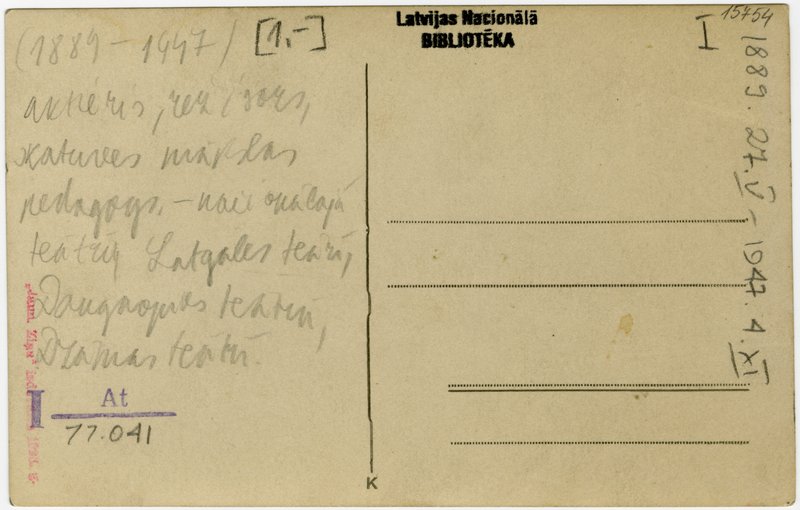 (1889 – 1947)
[1,-]
Latvijas Nacionālā
BIBLIOTĒKA
15754
I
aktieris, režisors,
skatuves mākslas
pedagogs, – nacionālajā
teātrī, Latgales teātrī,
Daugavpils teātrī,
Drāmas teātrī.
1889. 27. V – 1947. 4. XI
At
77.041
K